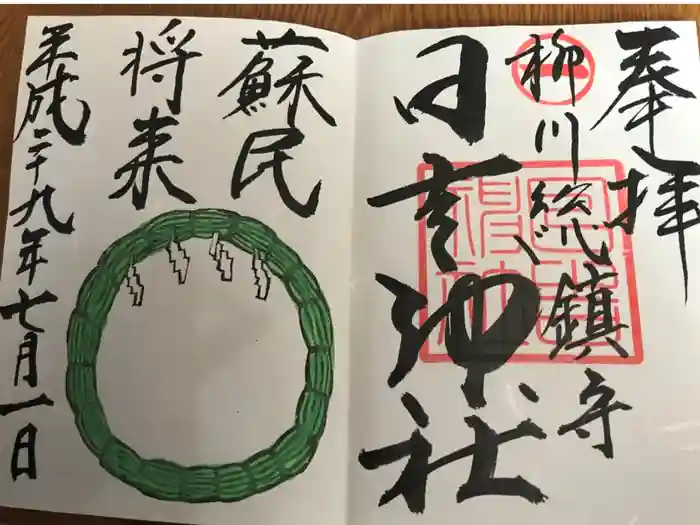 奉拝
柳川総鎮守
日吉神社
蘇民
将来
平成二十九年七月一日